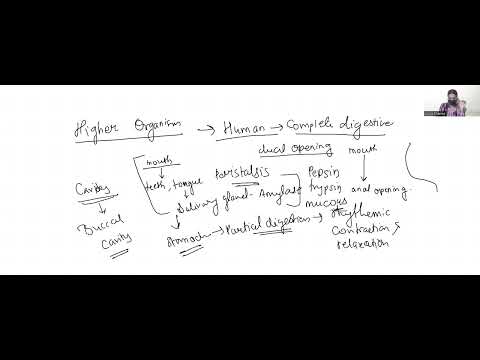 Higher Organism → Human → Complete digestive
dual opening
mouth
mouth
teeth, tongue
Peristalsis
Pepsin
trypsin
mucous
anal opening.
Cavity
Salivary gland - Amylase
Buccal
Cavity
Stomach → Partial digestion → Rhythmic
Contraction &
relaxation